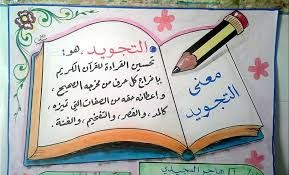 التجويد، هو:
تحسين القراءة للقرآن الكريم
بإخراج كل حرف من مخرجه الصحيح،
وإعطائه حقه من الصفات التي تميزه
كالمد، والقصر، والتفخيم، والغنة.
معنى
التجويد
هاجر المجيدي